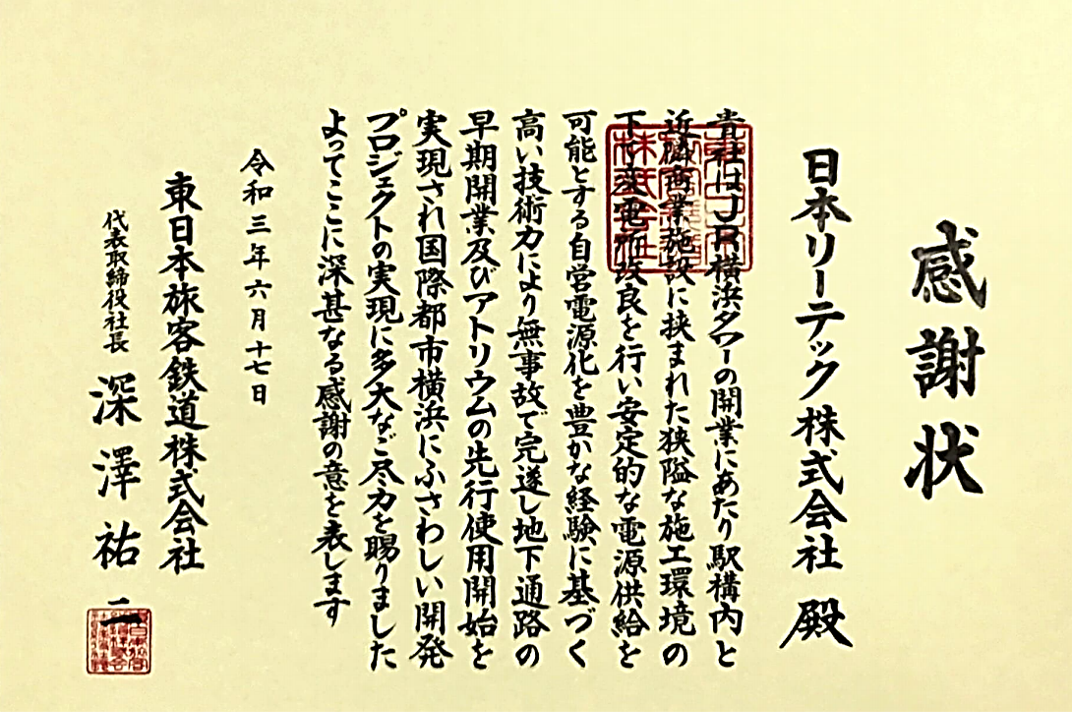 感謝状
日本リーテック株式会社 殿
貴社はJR横浜タワーの開業にあたり駅構内と
近隣商業施設に挟まれた狭隘な施工環境の
下で変電所改良を行い安定的な電源供給を
可能とする自営電源化を豊かな経験に基づく
高い技術力により無事故で完遂し地下通路の
早期開業及びアトリウムの先行使用開始を
実現され国際都市横浜にふさわしい開発
プロジェクトの実現に多大なご尽力を賜りました
よってここに深甚なる感謝の意を表します
令和三年六月十七日
東日本旅客鉄道株式会社
代表取締役社長 深澤祐二